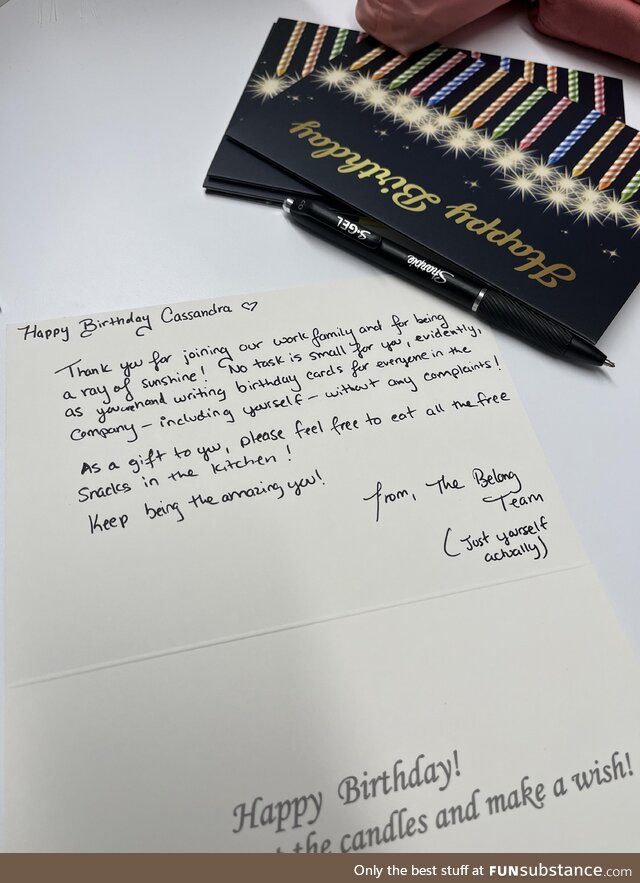 Happy Birthday
S·GEL
Sharpie
Happy Birthday Cassandra ♡
Thank you for joining our work family and for being
a ray of sunshine! No task is small for you, evidently,
as you're hand writing birthday cards for everyone in the
company – including yourself – without any complaints!
As a gift to you, please feel free to eat all the free
snacks in the kitchen!
Keep being the amazing you!
from, The Belong
Team
(Just yourself
actually)
Happy Birthday!
the candles and make a wish!
Only the best stuff at FUNsubstance.com